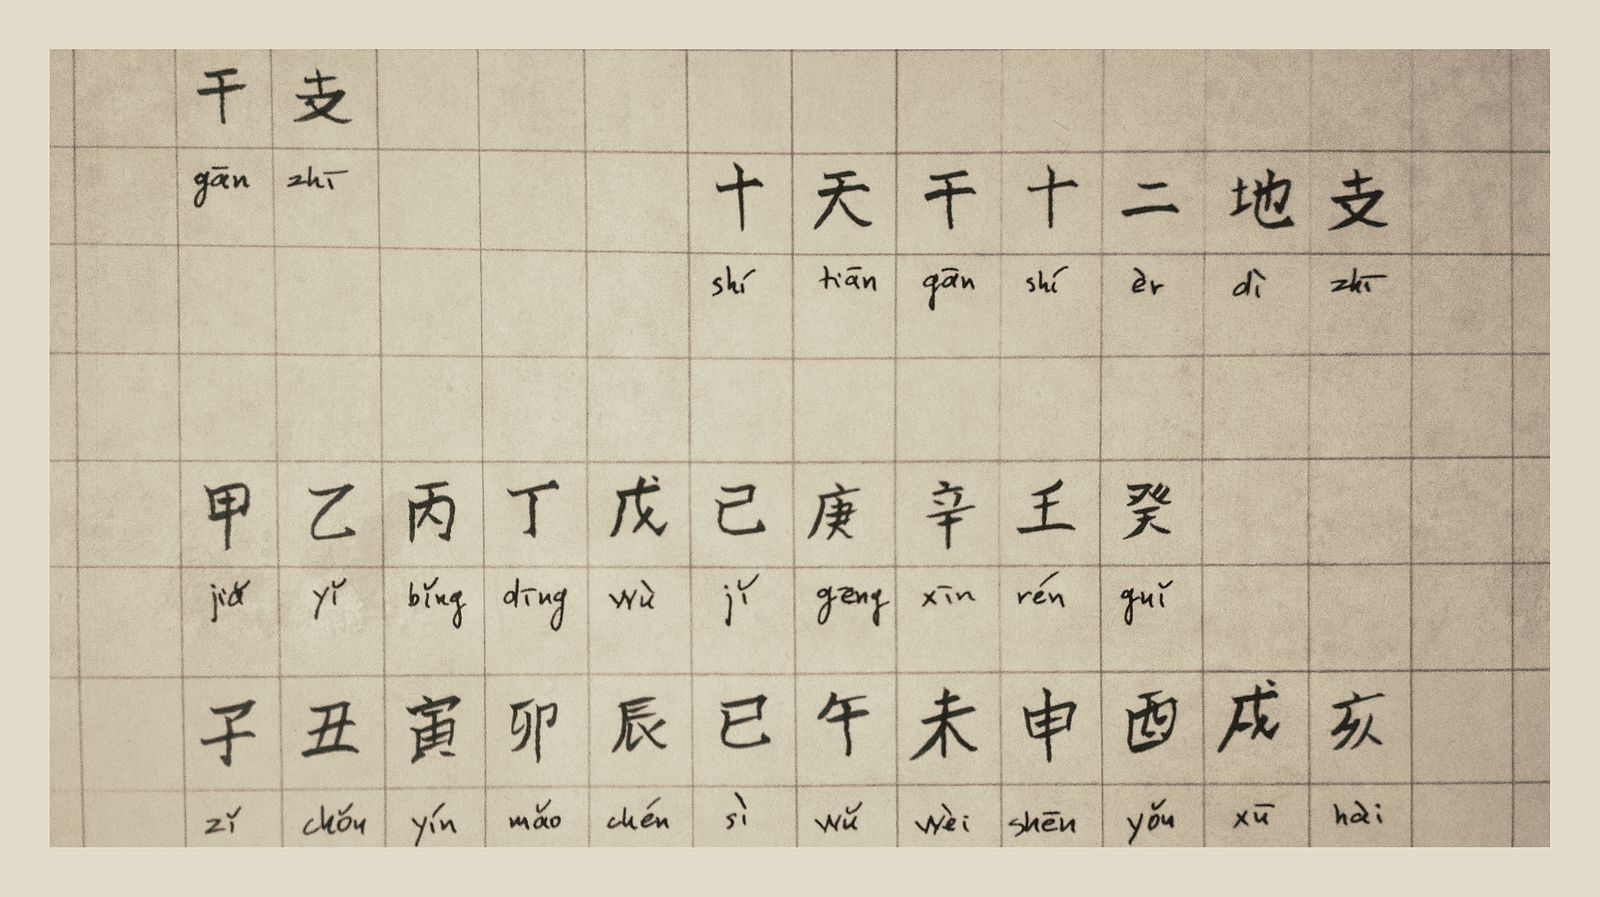 干支
gān zhī
十天干十二地支
shí tiān gān shí èr dì zhī
甲乙丙丁戊己庚辛壬癸
jiǎ yǐ bǐng dīng wù jǐ gēng xīn rén guǐ
子丑寅卯辰巳午未申酉戌亥
zǐ chǒu yín mǎo chén sì wǔ wèi shēn yǒu xū hài